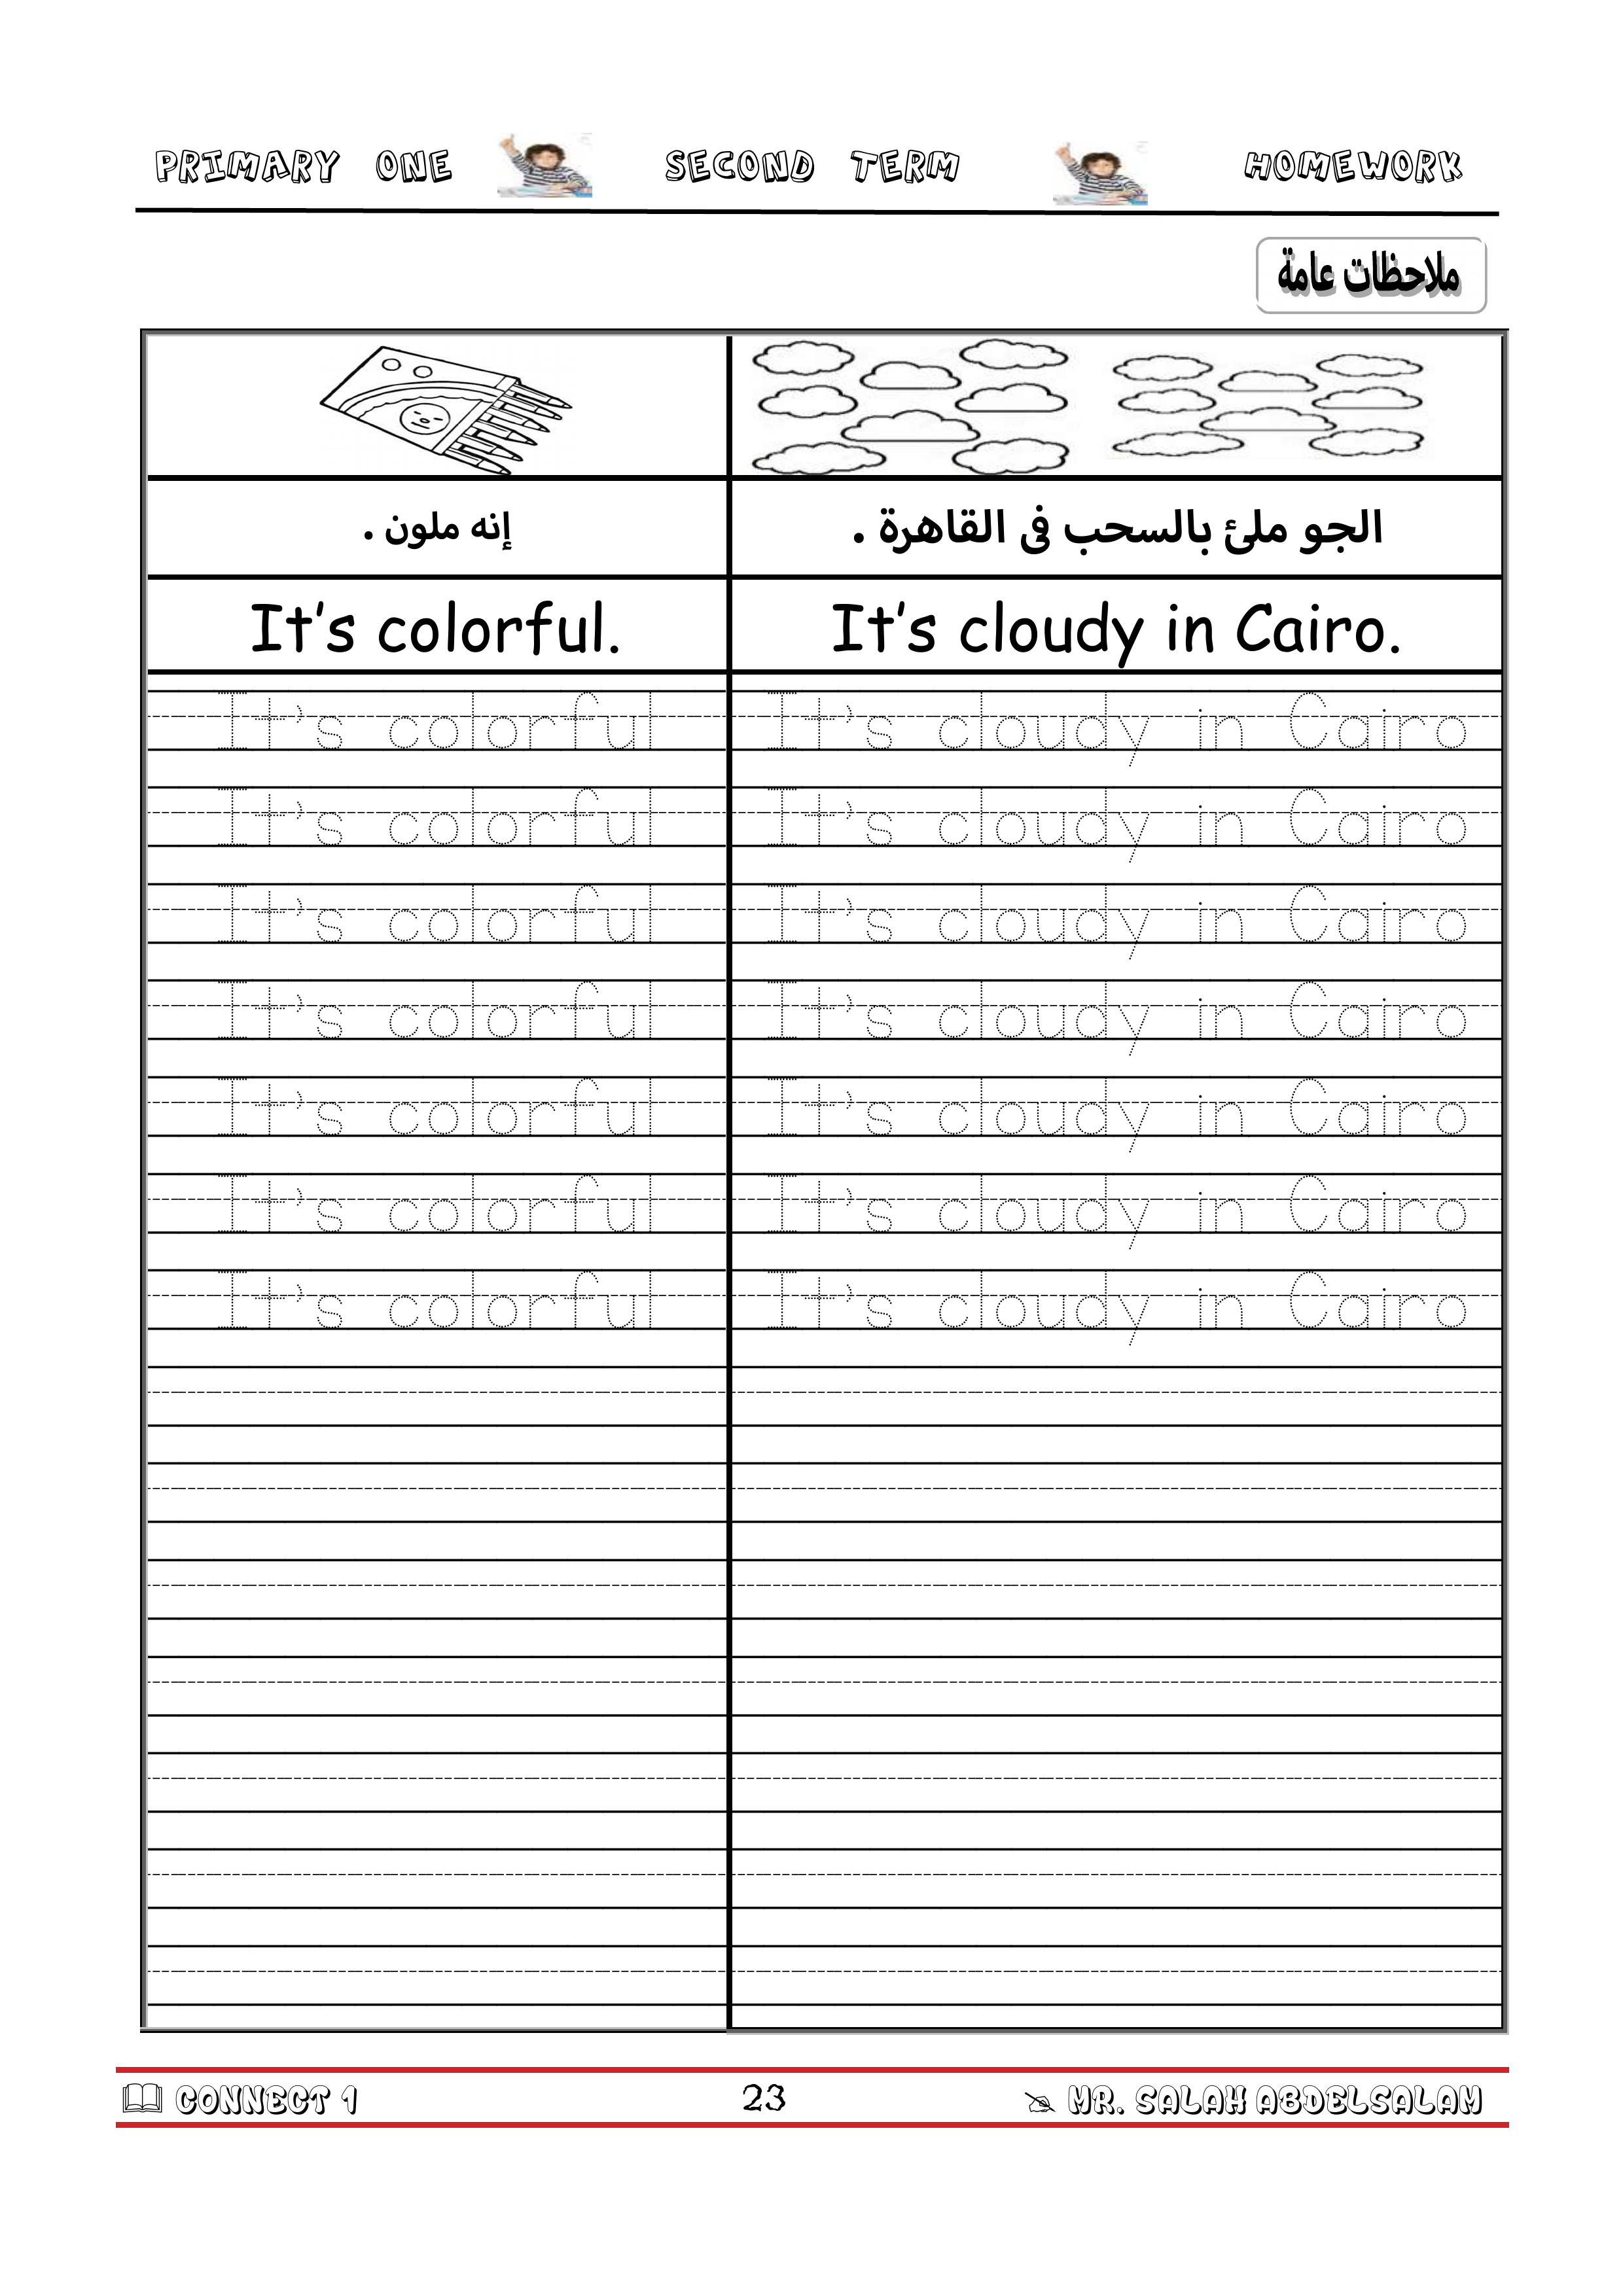 PRIMARY ONE SECOND TERM HOMEWORK
ملاحظات عامة
إنه ملون . الجو ملئ بالسحب فى القاهرة .
It's colorful. It's cloudy in Cairo.
It's colorful It's cloudy in Cairo
It's colorful It's cloudy in Cairo
It's colorful It's cloudy in Cairo
It's colorful It's cloudy in Cairo
It's colorful It's cloudy in Cairo
It's colorful It's cloudy in Cairo
It's colorful It's cloudy in Cairo
CONNECT 1 23 MR. SALAH ABDELSALAM